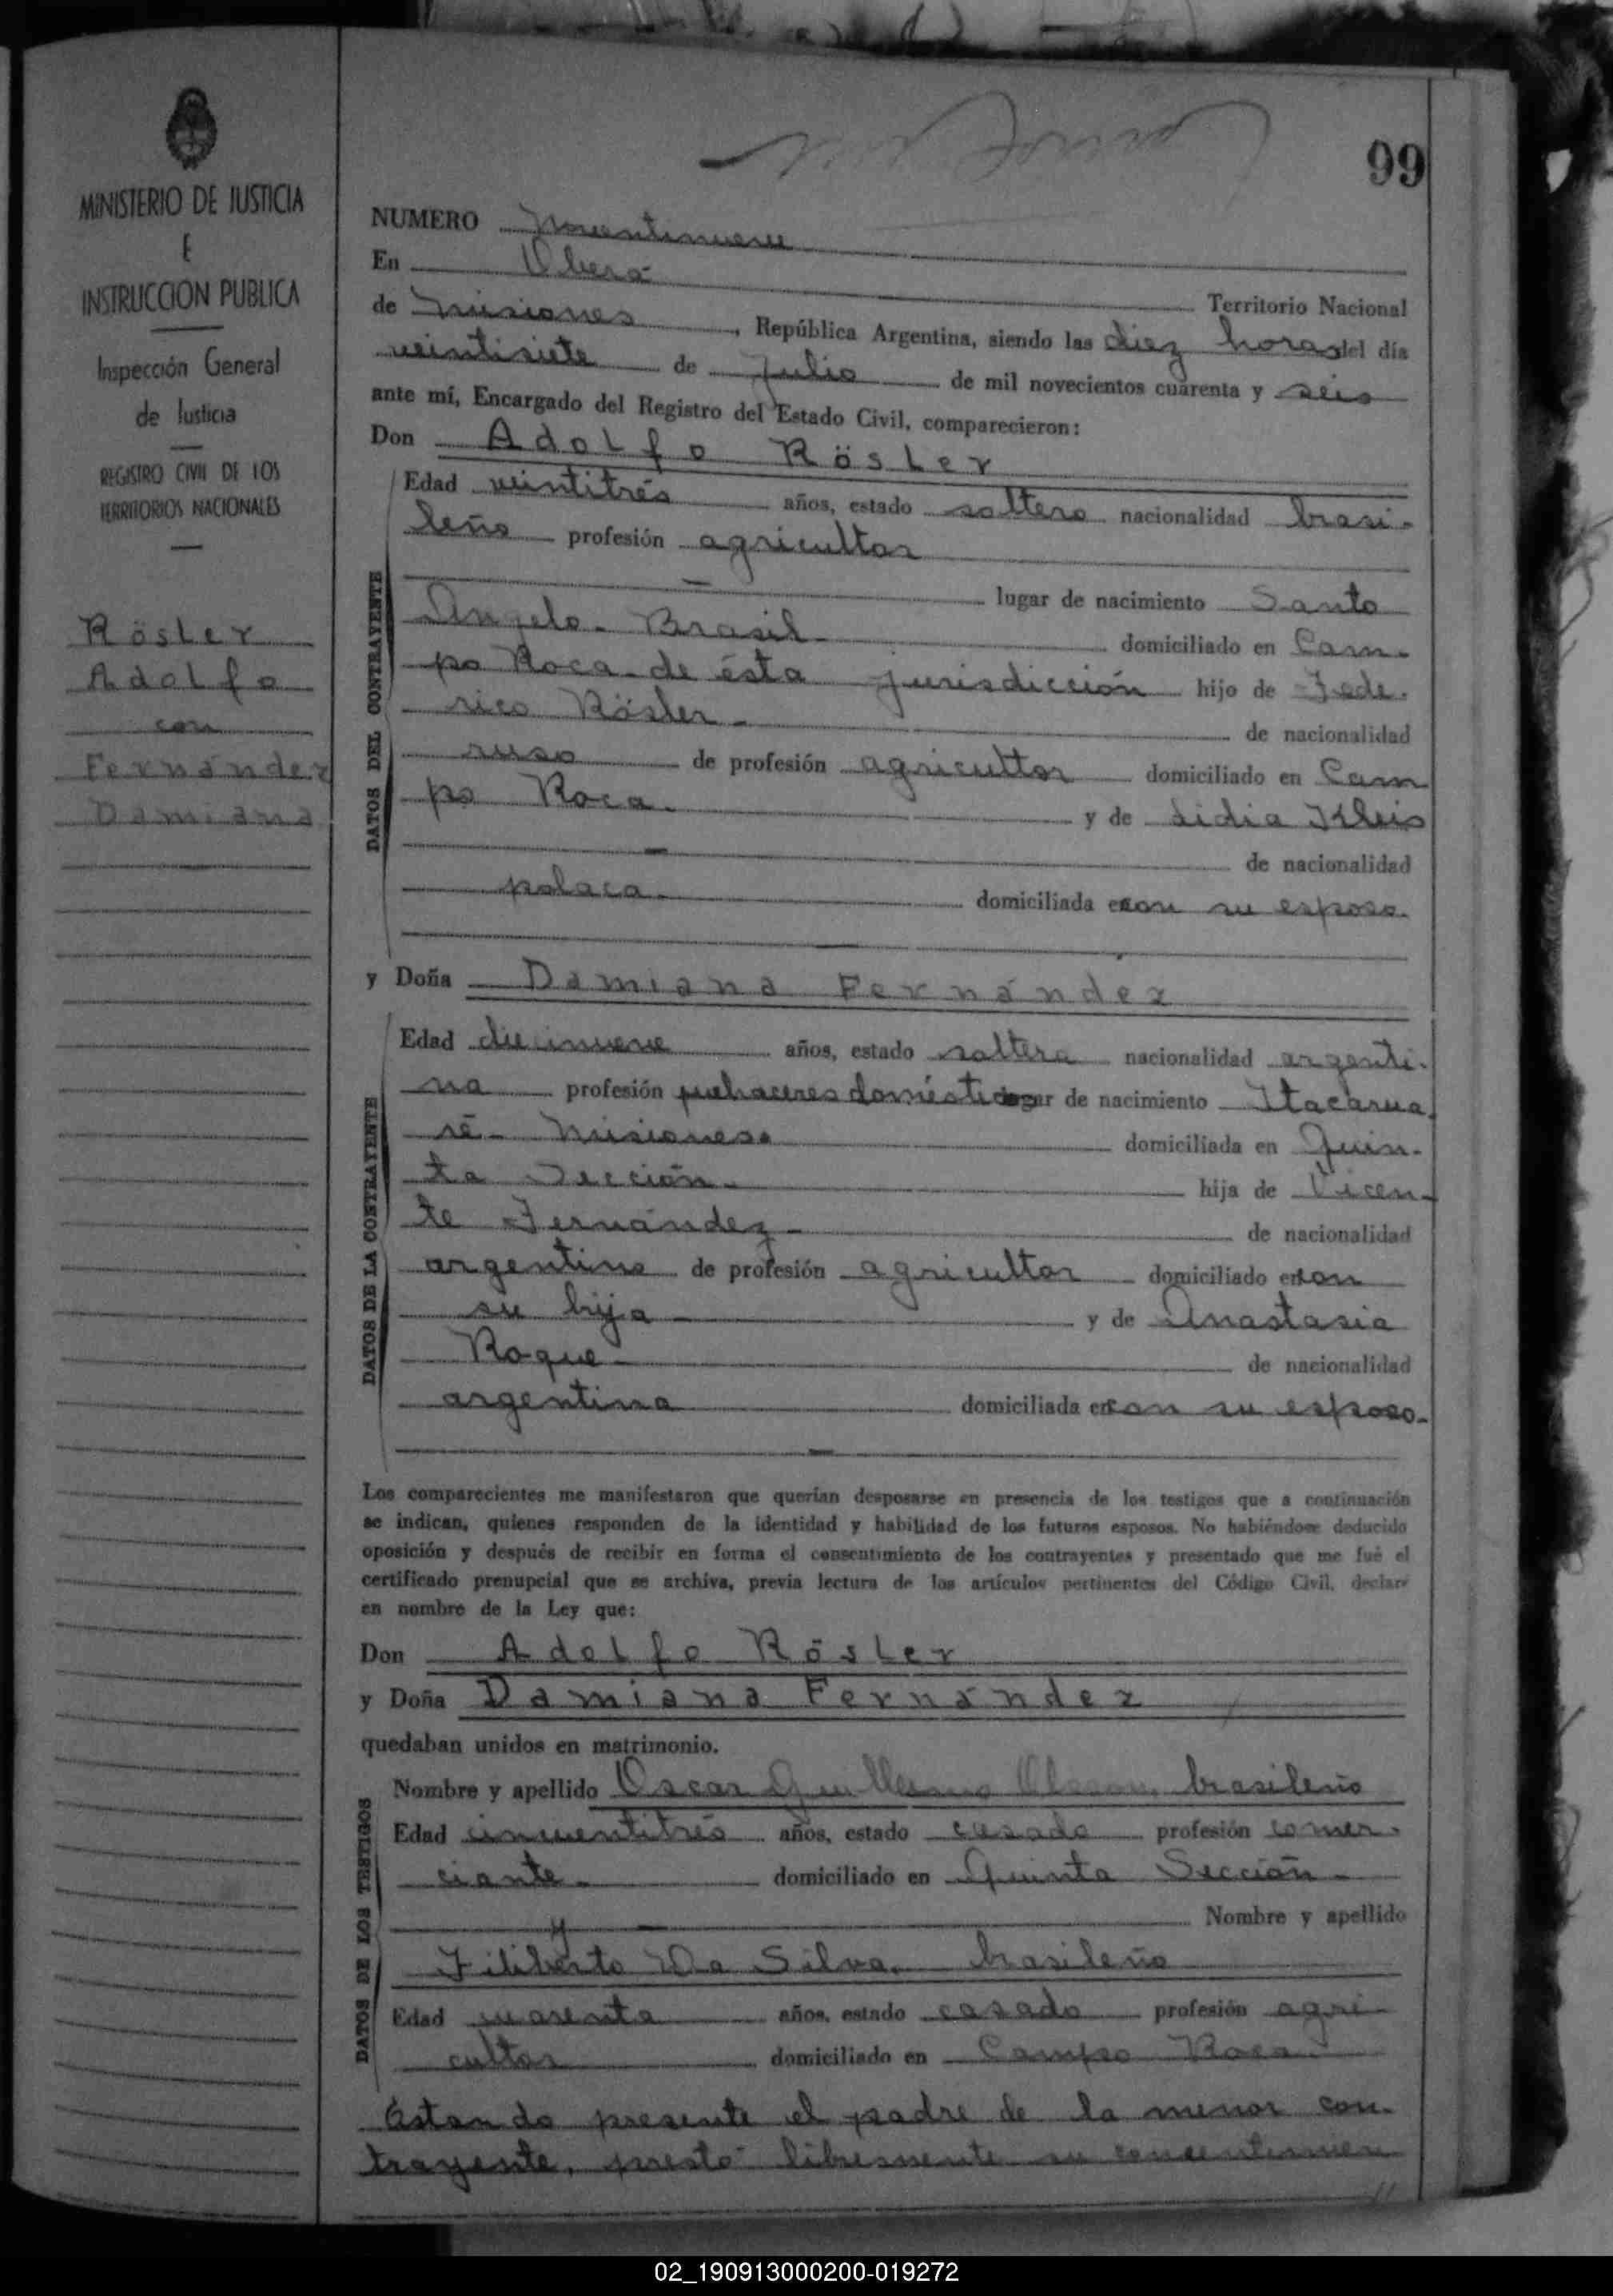 MINISTERIO DE JUSTICIA
E
INSTRUCCION PUBLICA
Inspección General
de Justicia
REGISTRO CIVIL DE LOS
TERRITORIOS NACIONALES
Rösler
Adolfo
con
Fernández
Damiana
99
NUMERO Noventinueve
En Oberá
Territorio Nacional
de Misiones, República Argentina, siendo las diez horas del día
veintisiete de Julio de mil novecientos cuarenta y seis
ante mí, Encargado del Registro del Estado Civil, comparecieron:
Don Adolfo Rösler
DATOS DEL CONTRAYENTE
Edad veintitrés años, estado soltero nacionalidad brasi-
leño profesión agricultor
lugar de nacimiento Santo
Angelo - Brasil - domiciliado en Cam-
po Roca - de ésta jurisdicción hijo de Fede-
rico Rösler - de nacionalidad
ruso de profesión agricultor domiciliado en Cam
po Roca - y de Lidia Kleis
de nacionalidad
polaca - domiciliada con su esposo.
y Doña Damiana Fernández
DATOS DE LA CONTRAYENTE
Edad diecinueve años, estado soltera nacionalidad argenti-
na profesión quehaceres domésticos lugar de nacimiento Itacarua-
ré - Misiones. domiciliada en Quin-
ta Sección - hija de Vicen-
te Fernández - de nacionalidad
argentino de profesión agricultor domiciliado en con
su hija y de Anastasia
Roque - de nacionalidad
argentina domiciliada en con su esposo.
Los comparecientes me manifestaron que querían desposarse en presencia de los testigos que a continuación
se indican, quienes responden de la identidad y habilidad de los futuros esposos. No habiéndose deducido
oposición y después de recibir en forma el consentimiento de los contrayentes y presentado que me fué el
certificado prenupcial que se archiva, previa lectura de los artículos pertinentes del Código Civil, declaré
en nombre de la Ley que:
Don Adolfo Rösler
y Doña Damiana Fernández
quedaban unidos en matrimonio.
DATOS DE LOS TESTIGOS
Nombre y apellido Oscar Guillermo brasileño
Edad cincuentitrés años, estado casado profesión comer-
ciante - domiciliado en Quinta Sección -
y Nombre y apellido
Filiberto Da Silva, brasileño
Edad cuarenta años, estado casado profesión agri-
cultor domiciliado en Campo Roca
Estando presente el padre de la menor con-
trayente, prestó libremente su consentimien
02_190913000200-019272